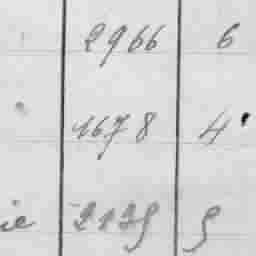 2966 6
1678 4
ie 2139 9